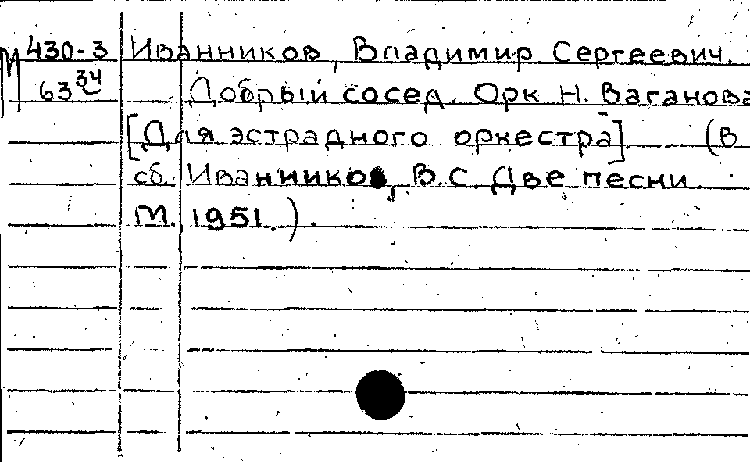 М 430-3 Иванников, Владимир Сергеевич.
63 34 Добрый сосед. Орк Н. Ваганова
[Для эстрадного оркестра] (В
сб. Иванников, В.С. Две песни
М. 1951.).